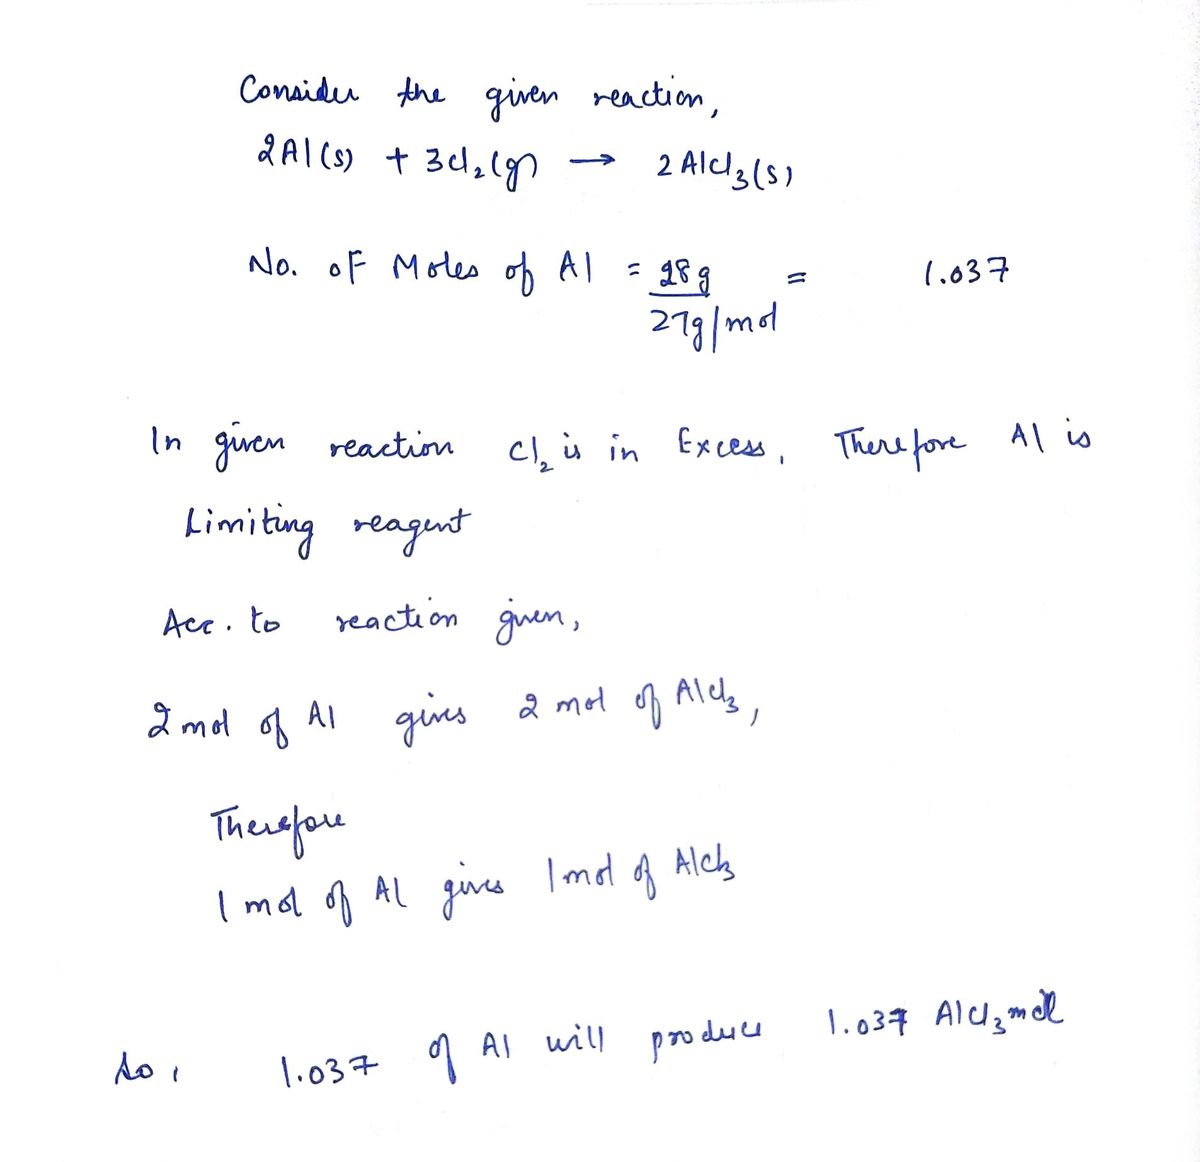 Consider the given reaction,
2Al(s) + 3Cl₂(g) → 2AlCl₃(s)
No. of Moles of Al = 28g = 1.037
27g/mol
In given reaction Cl₂ is in Excess, Therefore Al is
Limiting reagent
Acc. to reaction given,
2 mol of Al gives 2 mol of AlCl₃,
Therefore
1 mol of Al gives 1 mol of AlCl₃
So, 1.037 of Al will produce 1.037 AlCl₃ mol